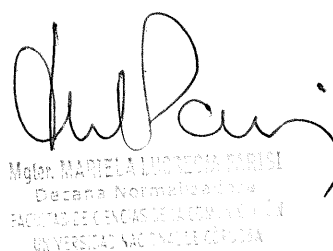 Mgter. MARIELA LUCRECIA PARISI
Decana Normalizadora
FACULTAD DE CIENCIAS DE LA COMUNICACIÓN
UNIVERSIDAD NACIONAL DE CÓRDOBA